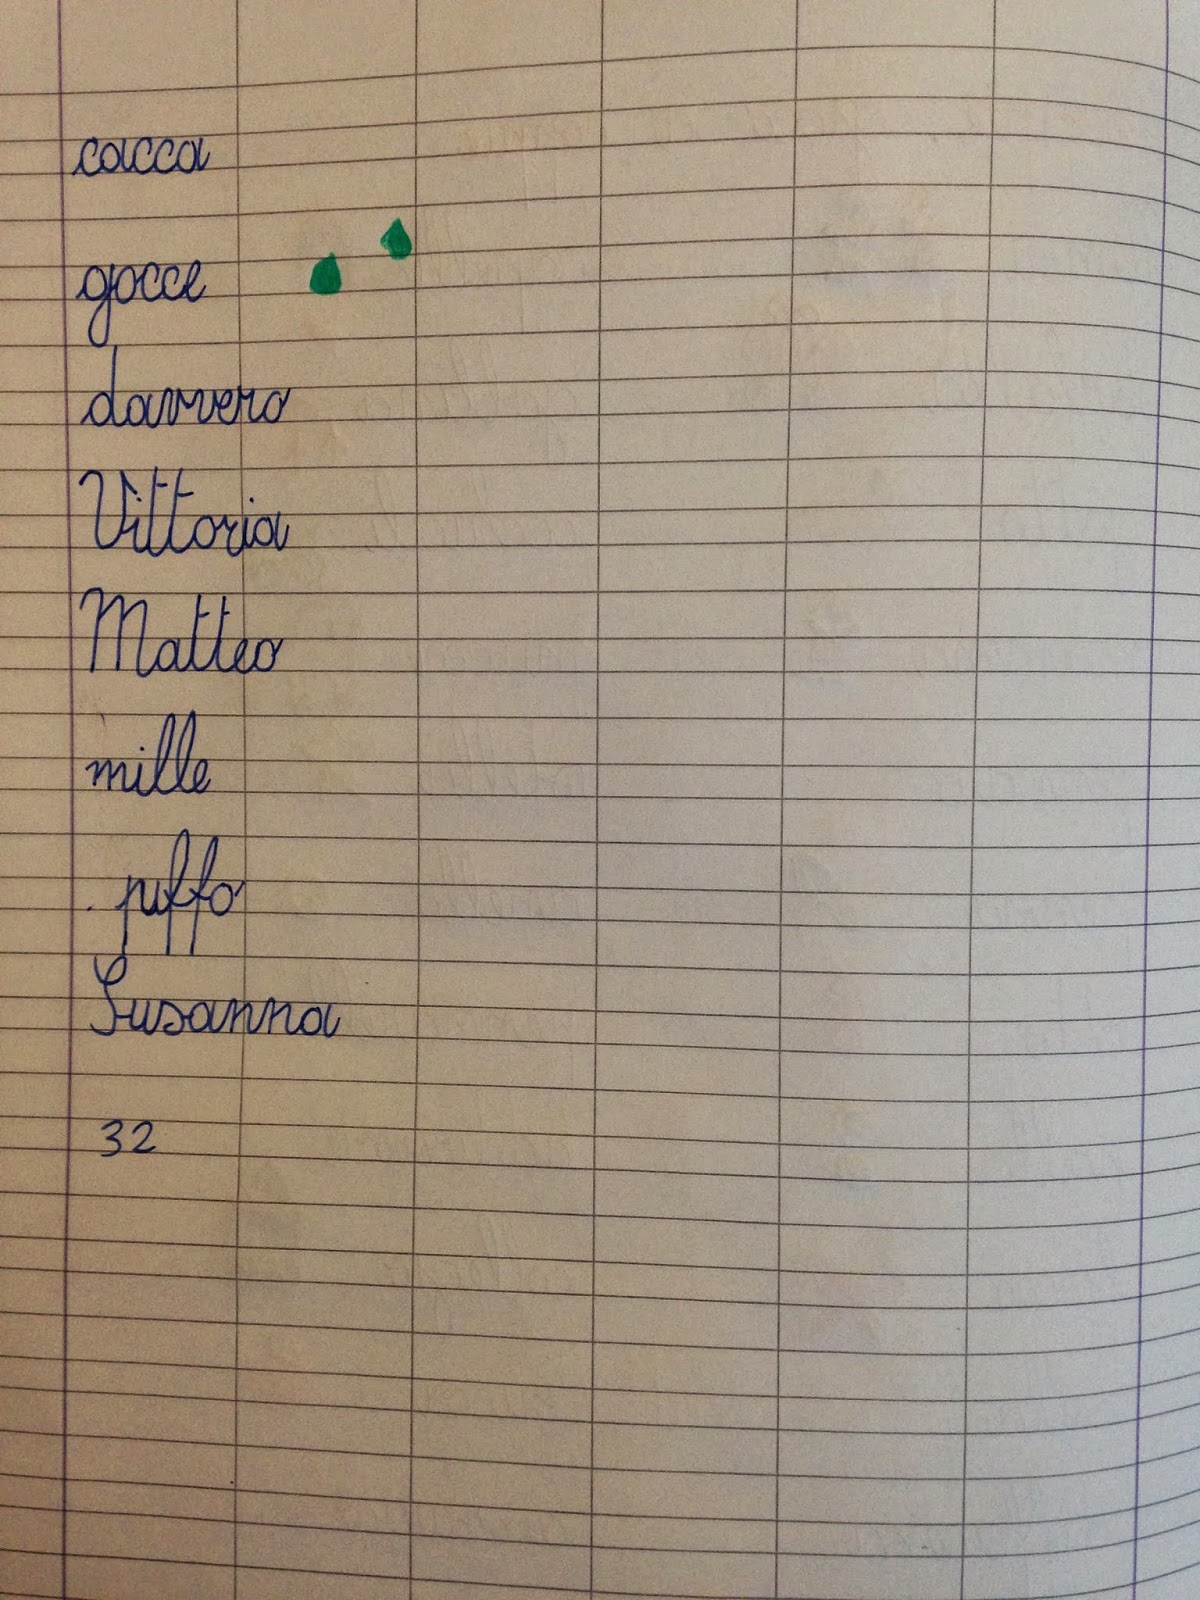 cacca
gocce
davvero
Vittoria
Matteo
mille
puffo
Susanna
32